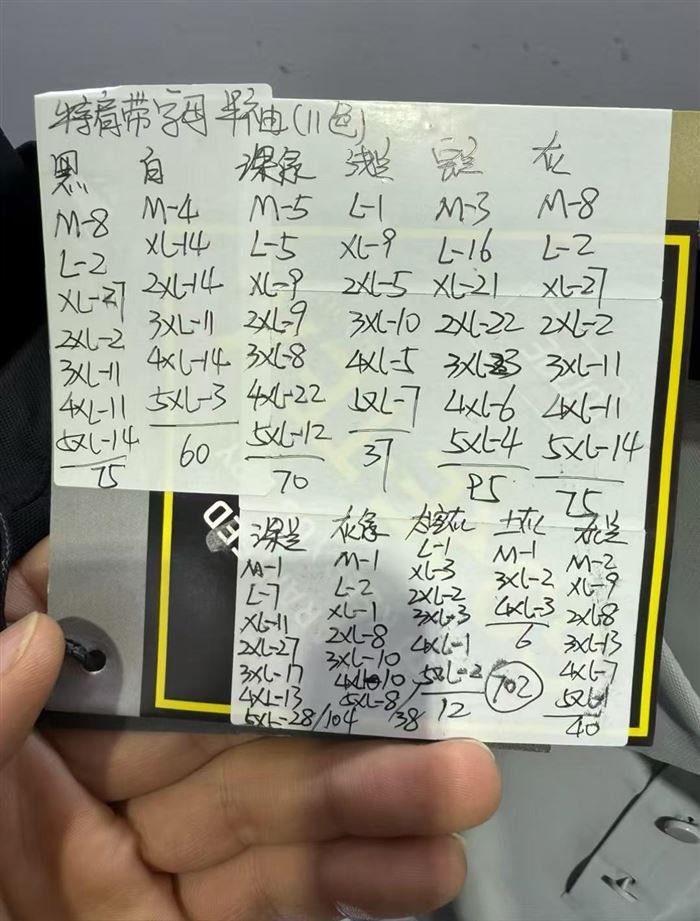 特肩带字母 半袖(11色)
黑 白 深绿 浅兰 宝兰 灰
M-8 M-4 M-5 L-1 M-3 M-8
L-2 XL-14 L-5 XL-9 L-16 L-2
XL-27 2XL-14 XL-9 2XL-5 XL-21 XL-27
2XL-2 3XL-11 2XL-9 3XL-10 2XL-22 2XL-2
3XL-11 4XL-14 3XL-8 4XL-5 3XL-23 3XL-11
4XL-11 5XL-3 4XL-22 5XL-7 4XL-6 4XL-11
5XL-14 60 5XL-12 37 5XL-4 5XL-14
75 70 95 75
深兰 灰绿 灰 土灰 灰兰
M-1 M-1 L-1 M-1 M-2
L-7 L-2 XL-3 3XL-2 XL-9
XL-11 XL-1 2XL-2 4XL-3 2XL-8
2XL-27 2XL-8 3XL-3 6 3XL-13
3XL-17 3XL-10 4XL-1 4XL-7
4XL-13 4XL-10 5XL-2 702 5XL-1
5XL-28/104 5XL-8/38 12 40